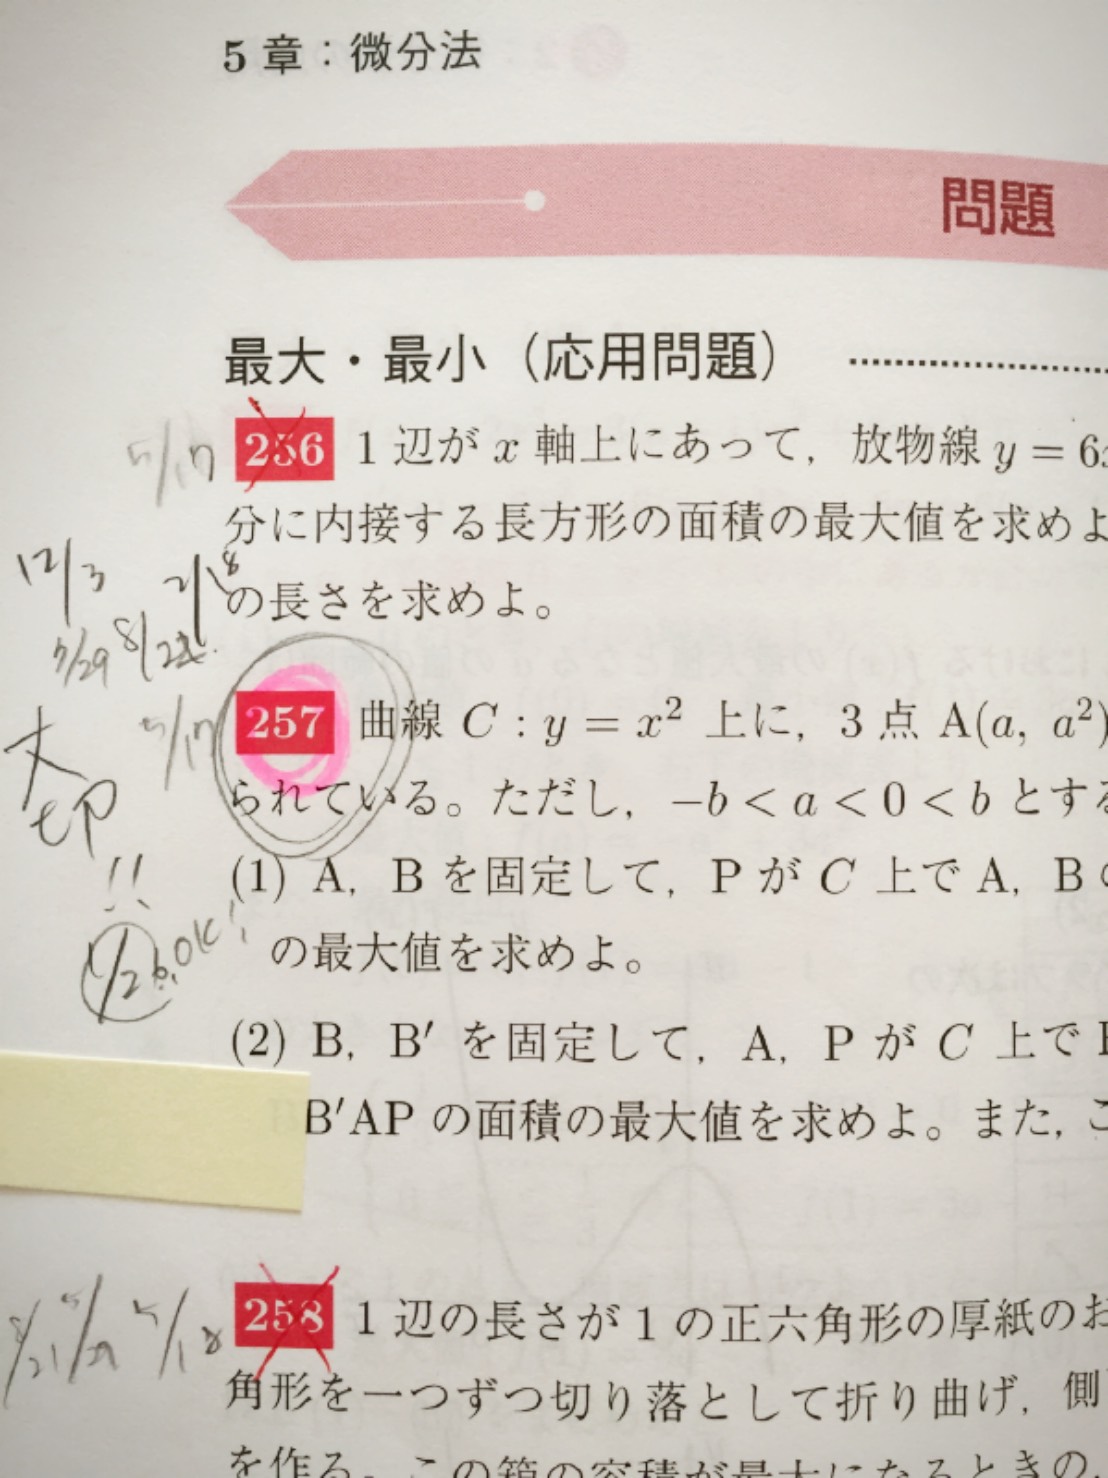 5 章：微分法
問題
最大・最小（応用問題）
5/17
256 1 辺が x 軸上にあって，放物線 y = 6
分に内接する長方形の面積の最大値を求めよ
12/3 2/18
の長さを求めよ。
7/29 8/22
257 曲線 C : y = x² 上に，3 点 A(a, a²)
5/17
大切!!
られている。ただし，−b < a < 0 < b とする
(1) A，B を固定して，P が C 上で A，B の
1/26. OK!
の最大値を求めよ。
(2) B，B′ を固定して，A，P が C 上で
B′AP の面積の最大値を求めよ。また，こ
5/18
258 1 辺の長さが 1 の正六角形の厚紙のお
角形を一つずつ切り落として折り曲げ，側
を作る。この箱の容積が最大になるときの